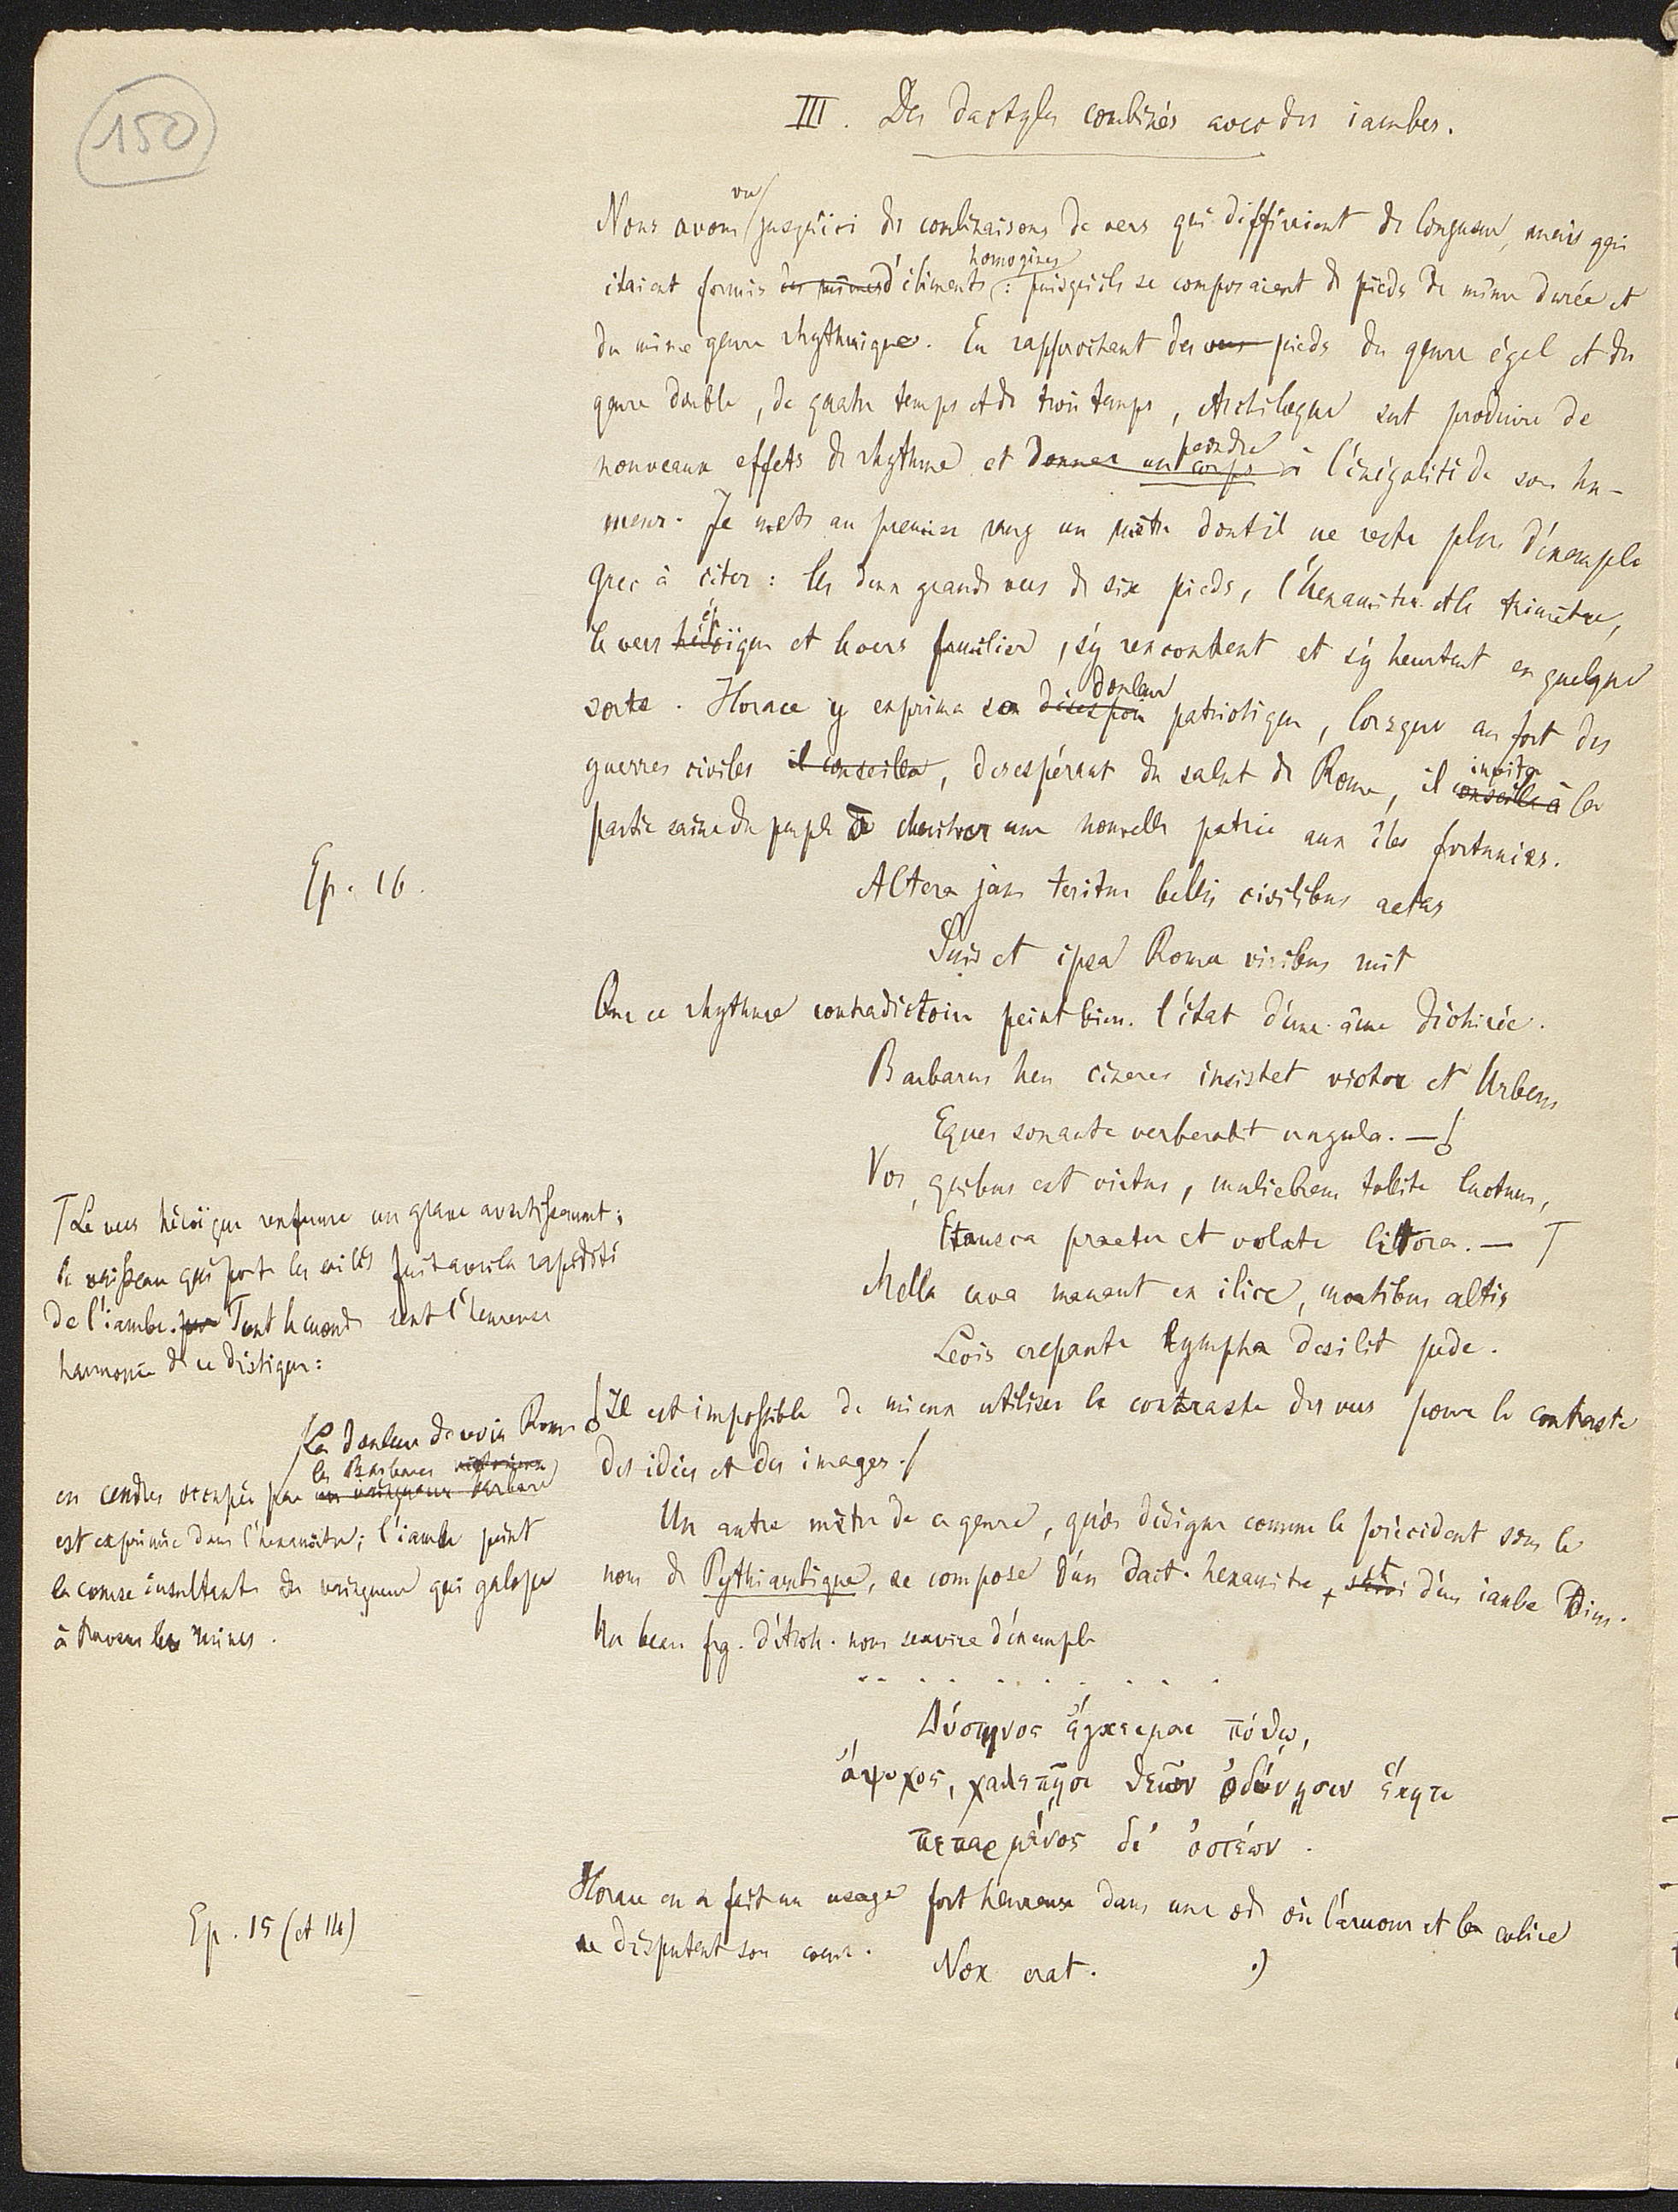 150
III. Des dactyles combinés avec des iambes.
vu
Nous avons jusqu'ici des combinaisons de vers qui différaient de longueur, mais qui
homogènes
étaient formés des mêmes d'éléments : puisqu'ils se composaient de pieds de même durée et
du même genre rhythmique. En rapprochant des vers pieds du genre égal et du
genre double, de quatre temps et de trois temps, Archiloque sut produire de
peindre
nouveaux effets de rhythme et donner un corps à l'inégalité de son hu-
meur. Je mets au premier rang un mètre dont il ne reste plus d'exemple
grec à citer : les deux grands vers de six pieds, l'hexamètre et le trimètre,
le vers héroïque et le vers familier, s'y rencontrent et s'y heurtent en quelque
douleur
sorte. Horace y exprima sa désespoir patriotique, lorsque au fort des
guerres civiles il conseilla, désespérant du salut de Rome, il conseilla à la
invita
partie saine du peuple de chercher une nouvelle patrie aux îles fortunées.
Ep. 16.
Altera jam teritur bellis civilibus aetas
Suis et ipsa Roma viribus ruit
Que ce rhythme contradictoire peint bien l'état d'une âme déchirée.
Barbarus heu cineres insistet victor et Urbem
Eques sonante verberabit ungula. —
Vos, quibus est virtus, muliebrem tollite luctum,
Etrusca praeter et volate littora. —
Mella cava manant ex ilice, montibus altis
Levis crepante lympha desilit pede.
Le vers héroïque renferme un grave avertissement ;
le vaisseau qui porte les exilés fuit avec la rapidité
de l'iambe. Tout le monde sent l'heureuse
harmonie de ce distique :
La douleur de voir Rome
les Barbares victorieux
en cendres occupée par un vainqueur barbare
est exprimée dans l'hexamètre ; l'iambe peint
la course insultante du vainqueur qui galope
à travers les ruines.
Il est impossible de mieux utiliser le contraste des vers pour le contraste
des idées et des images.
Un autre mètre de ce genre, qu'on désigne comme le précédent sous le
nom de Pythiambique, se compose d'un dact. hexamètre et suivi d'un iambe dim.
Un beau frg. d'Arch. nous servira d'exemple
. . . . . . . . .
Δύστηνος ἔγκειμαι πόθῳ,
ἄψυχος, χαλεπῇσι θεῶν ὀδύνῃσιν ἕκητι
πεπαρμένος δι' ὀστέων.
Ep. 15 (et 14)
Horace en a fait un usage fort heureux dans une ode où l'amour et la colère
se disputent son coeur. Nox erat. .)